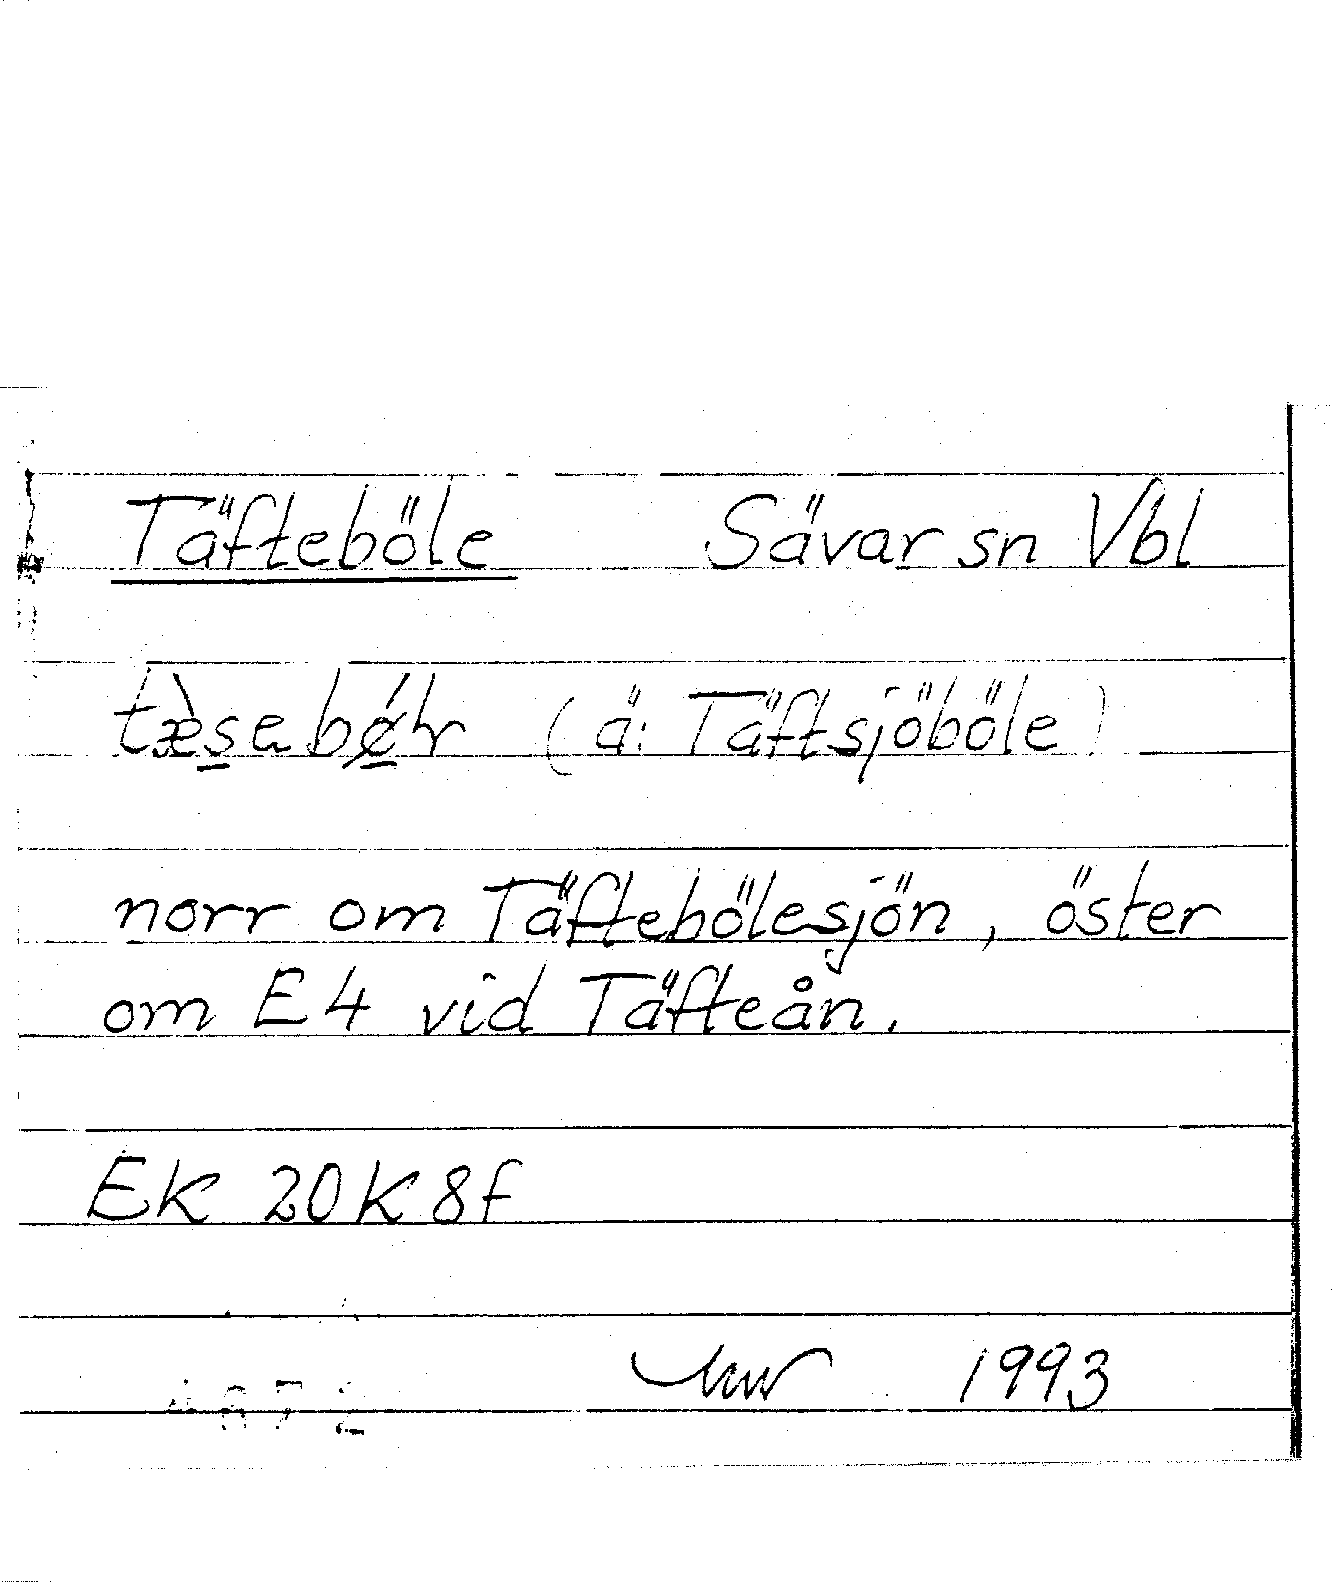 Täfteböle Sävar sn Vbl
(ä: Täftsjöböle)
norr om Täftebölesjön, öster
om E4 vid Täfteån.
EK 20K 8f
1993